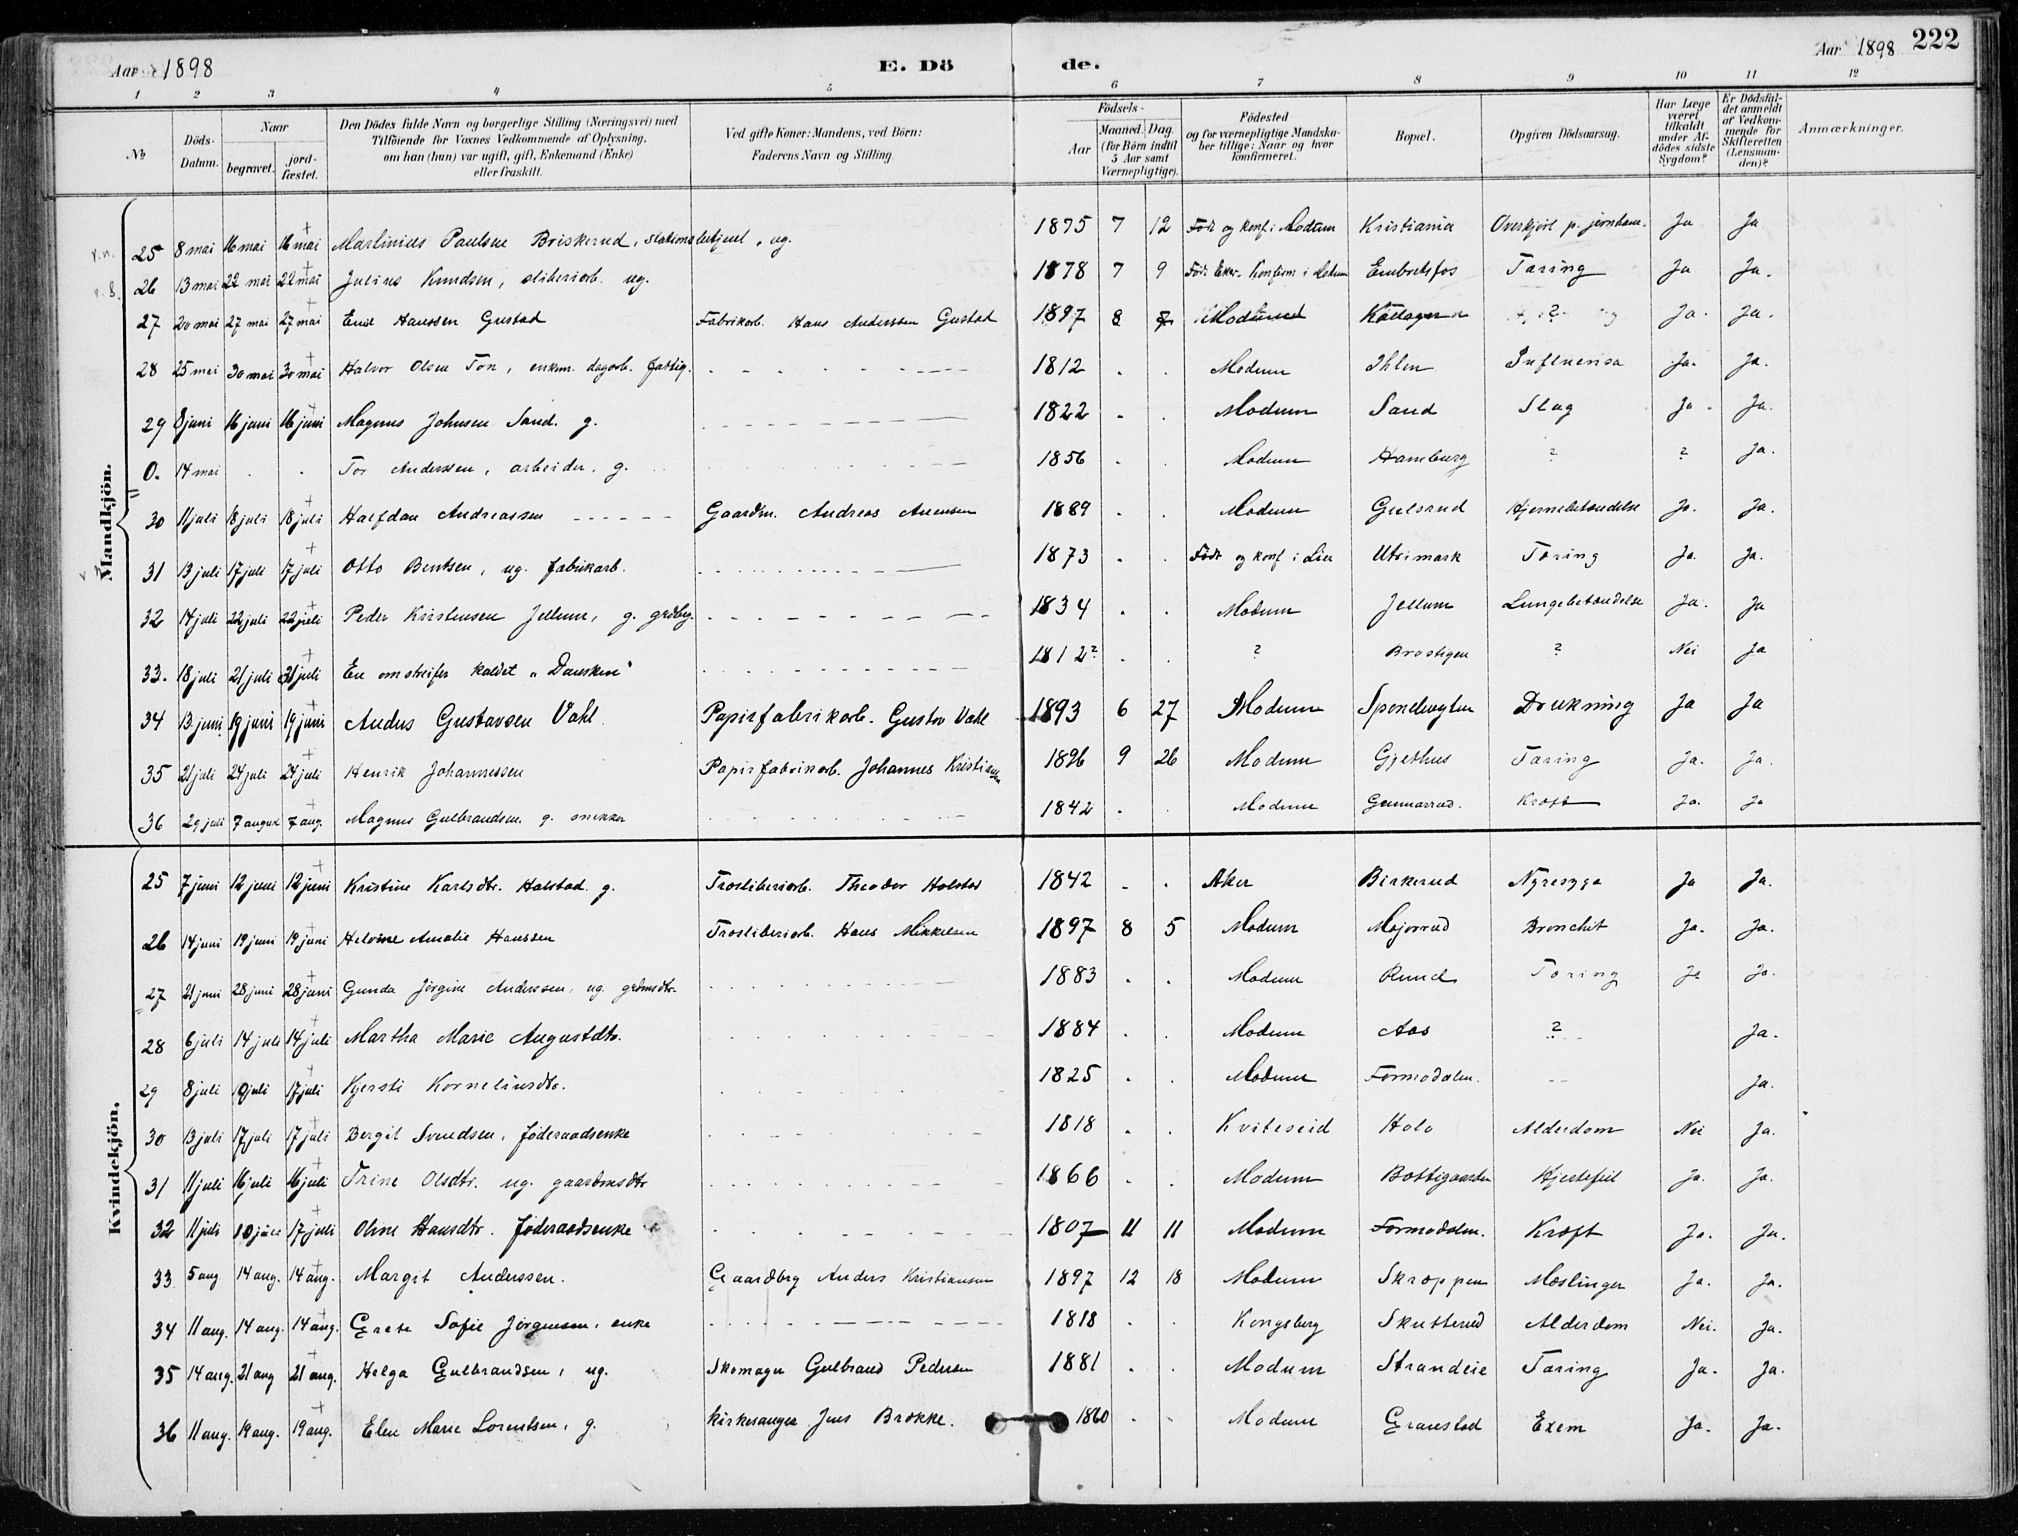 Aar 1898 E. Dö de. Aar 1898 222
1 2 3 4 5 6 7 8 9 10 11 12
No Döds-Datum. Naar begravet. jord-fæstet. Den Dödes fulde Navn og borgerlige Stilling (Næringsvei) med Tilföiende for Voxnes Vedkommende af Oplysning, om han (hun) var ugift, gift, Enkemand (Enke) eller fraskilt. Ved gifte Koner: Mandens, ved Börn: Faderens Navn og Stilling. Födsels- Aar Maaned. Dag. (for Börn indtil 5 Aar samt Værnepligtige). Födested og for værnepligtige Mandskaber tillige: Naar og hvor konfirmeret. Bopæl. Opgiven Dödsaarsag. Har Læge været tilkaldt under Afdödes sidste Sygdom? Er Dödsfaldet anmeldt af Vedkommende for Skifteretten (Lensmanden)? Anmærkninger.
Mandkjön.
25 8 mai 16 mai 16 mai Martinius Paulsen Briskerud, stationsbetjent, ug. 1875 7 12 Född og konf i Modum Kristiania Overkjørt p. jernbane. Ja Ja
26 13 mai 22 mai 22 mai Julius Knudsen, sliberiarb. ug. 1878 7 9 Född Eker. Konfirm i Modum Embretsfos Tæring Ja Ja.
27 20 mai 27 mai 27 mai Emil Hanssen Gustad Fabrikarb. Hans Anderssen Gustad 1897 8 Modum ? Ja. Ja.
28 25 mai 30 mai 30 mai Halvor Olsen Ton, enkm. dagarb. fattig. 1812 . . Modum Ihlen Influensa Ja. Ja.
29 8 juni 16 juni 16 juni Magnus Johnsen Sand. g. 1822 . . Modum Sand Slag Ja. Ja.
0. 14 mai . . Tor Anderssen, arbeider, g. 1856 . . Modum Hamburg ? ? Ja.
30 11 juli 18 juli 18 juli Halfdan Andreassen Gaardm. Andreas 1889 . . Modum Gulsrud Hjernebetændelse Ja. Ja.
31 13 juli 17 juli 17 juli Otto Bentsen, ug. fabrikarb. 1873 . . Född og konf i Lier Utvimark Tæring Ja. Ja.
32 14 juli 22 juli 22 juli Peder Kristensen Jellum, g. grdbrg. 1834 . . Modum Jellum Lungebetændelse Ja. Ja
33. 18 juli 21 juli 21 juli En omstreifer kaldet "Dansken" 1812? . . ? Brostigen ? Nei Ja
34 13 juni 19 juni 19 juni Anders Gustavsen Vahl Papirfabrikarb. Gustav Vahl 1893 6 27 Modum Drukning Ja Ja
35 21 juli 24 juli 24 juli Henrik Johannessen Papirfabrikarb. Johannes Kristiansen 1896 9 26 Modum Gjethus Tæring Ja. Ja.
36 29 juli 7 august 7 aug. Magnus Gulbrandsen g. snekker 1842 . . Modum Gunnarrud. Kræft Ja. Ja
Kvindekjön.
25 7 juni 12 juni 12 juni Kristine Karlsdtr. Holstad g. Træsliberiarb. Theodor Holstad 1842 . . Aker Birkerud Nyresyge Ja Ja.
26 14 juni 19 juni 19 juni Helvine Amalie Hanssen Træsliberiarb. Hans Mikkelsen 1897 8 5 Modum Majorrud Bronchit Ja. Ja.
27 21 juni 28 juni 28 juni Gunda Jørgine Anderssen, ug grdmsdtr. 1883 . . Modum Rund Tæring Ja Ja.
28 6 juli 14 juli 14 juli Martha Marie Augustdtr. 1884 . . Modum Aas ? Ja.
29 8 juli 10 juli 17 juli Kjersti Korneliusdtr. 1825 . . Modum Formodalen. Ja.
30 13 juli 17 juli 17 juli Bergit Svendsen, føderaadsenke 1818 . . Kviteseid Holo Alderdom Nei Ja.
31 11 juli 16 juli 16 juli Trine Olsdtr. ug. gaardmsdtr 1866 . . Modum Bottegaarden Hjertefeil Ja. Ja.
32 11 juli 10 juli 17 juli Oline Hansdtr. føderaadsenke 1807 11 11 Modum Formodalen. Kræft Ja. Ja.
33 5 aug 14 aug. 14 aug. Margit Anderssen. Gaardbrg Anders Kristiansen 1897 12 18 Modum Skroppen Mæslinger Ja. Ja.
34 11 aug. 14 aug. 14 aug. Grete Sofie Jørgensen, enke 1818 . . Kongsberg Skutterud Alderdom Nei. Ja.
35 14 aug. 21 aug 21 aug. Helga Gulbrandsen, ug. Skomager Gulbrand Pedersen 1881 . . Modum Strandeie Tæring Ja. Ja.
36 11 aug. 19 aug. 19 aug. Elen Marie Lorentsen, g. kirkesanger Jens Brokke. 1860 . . Modum Granstad Exem Ja. Ja.